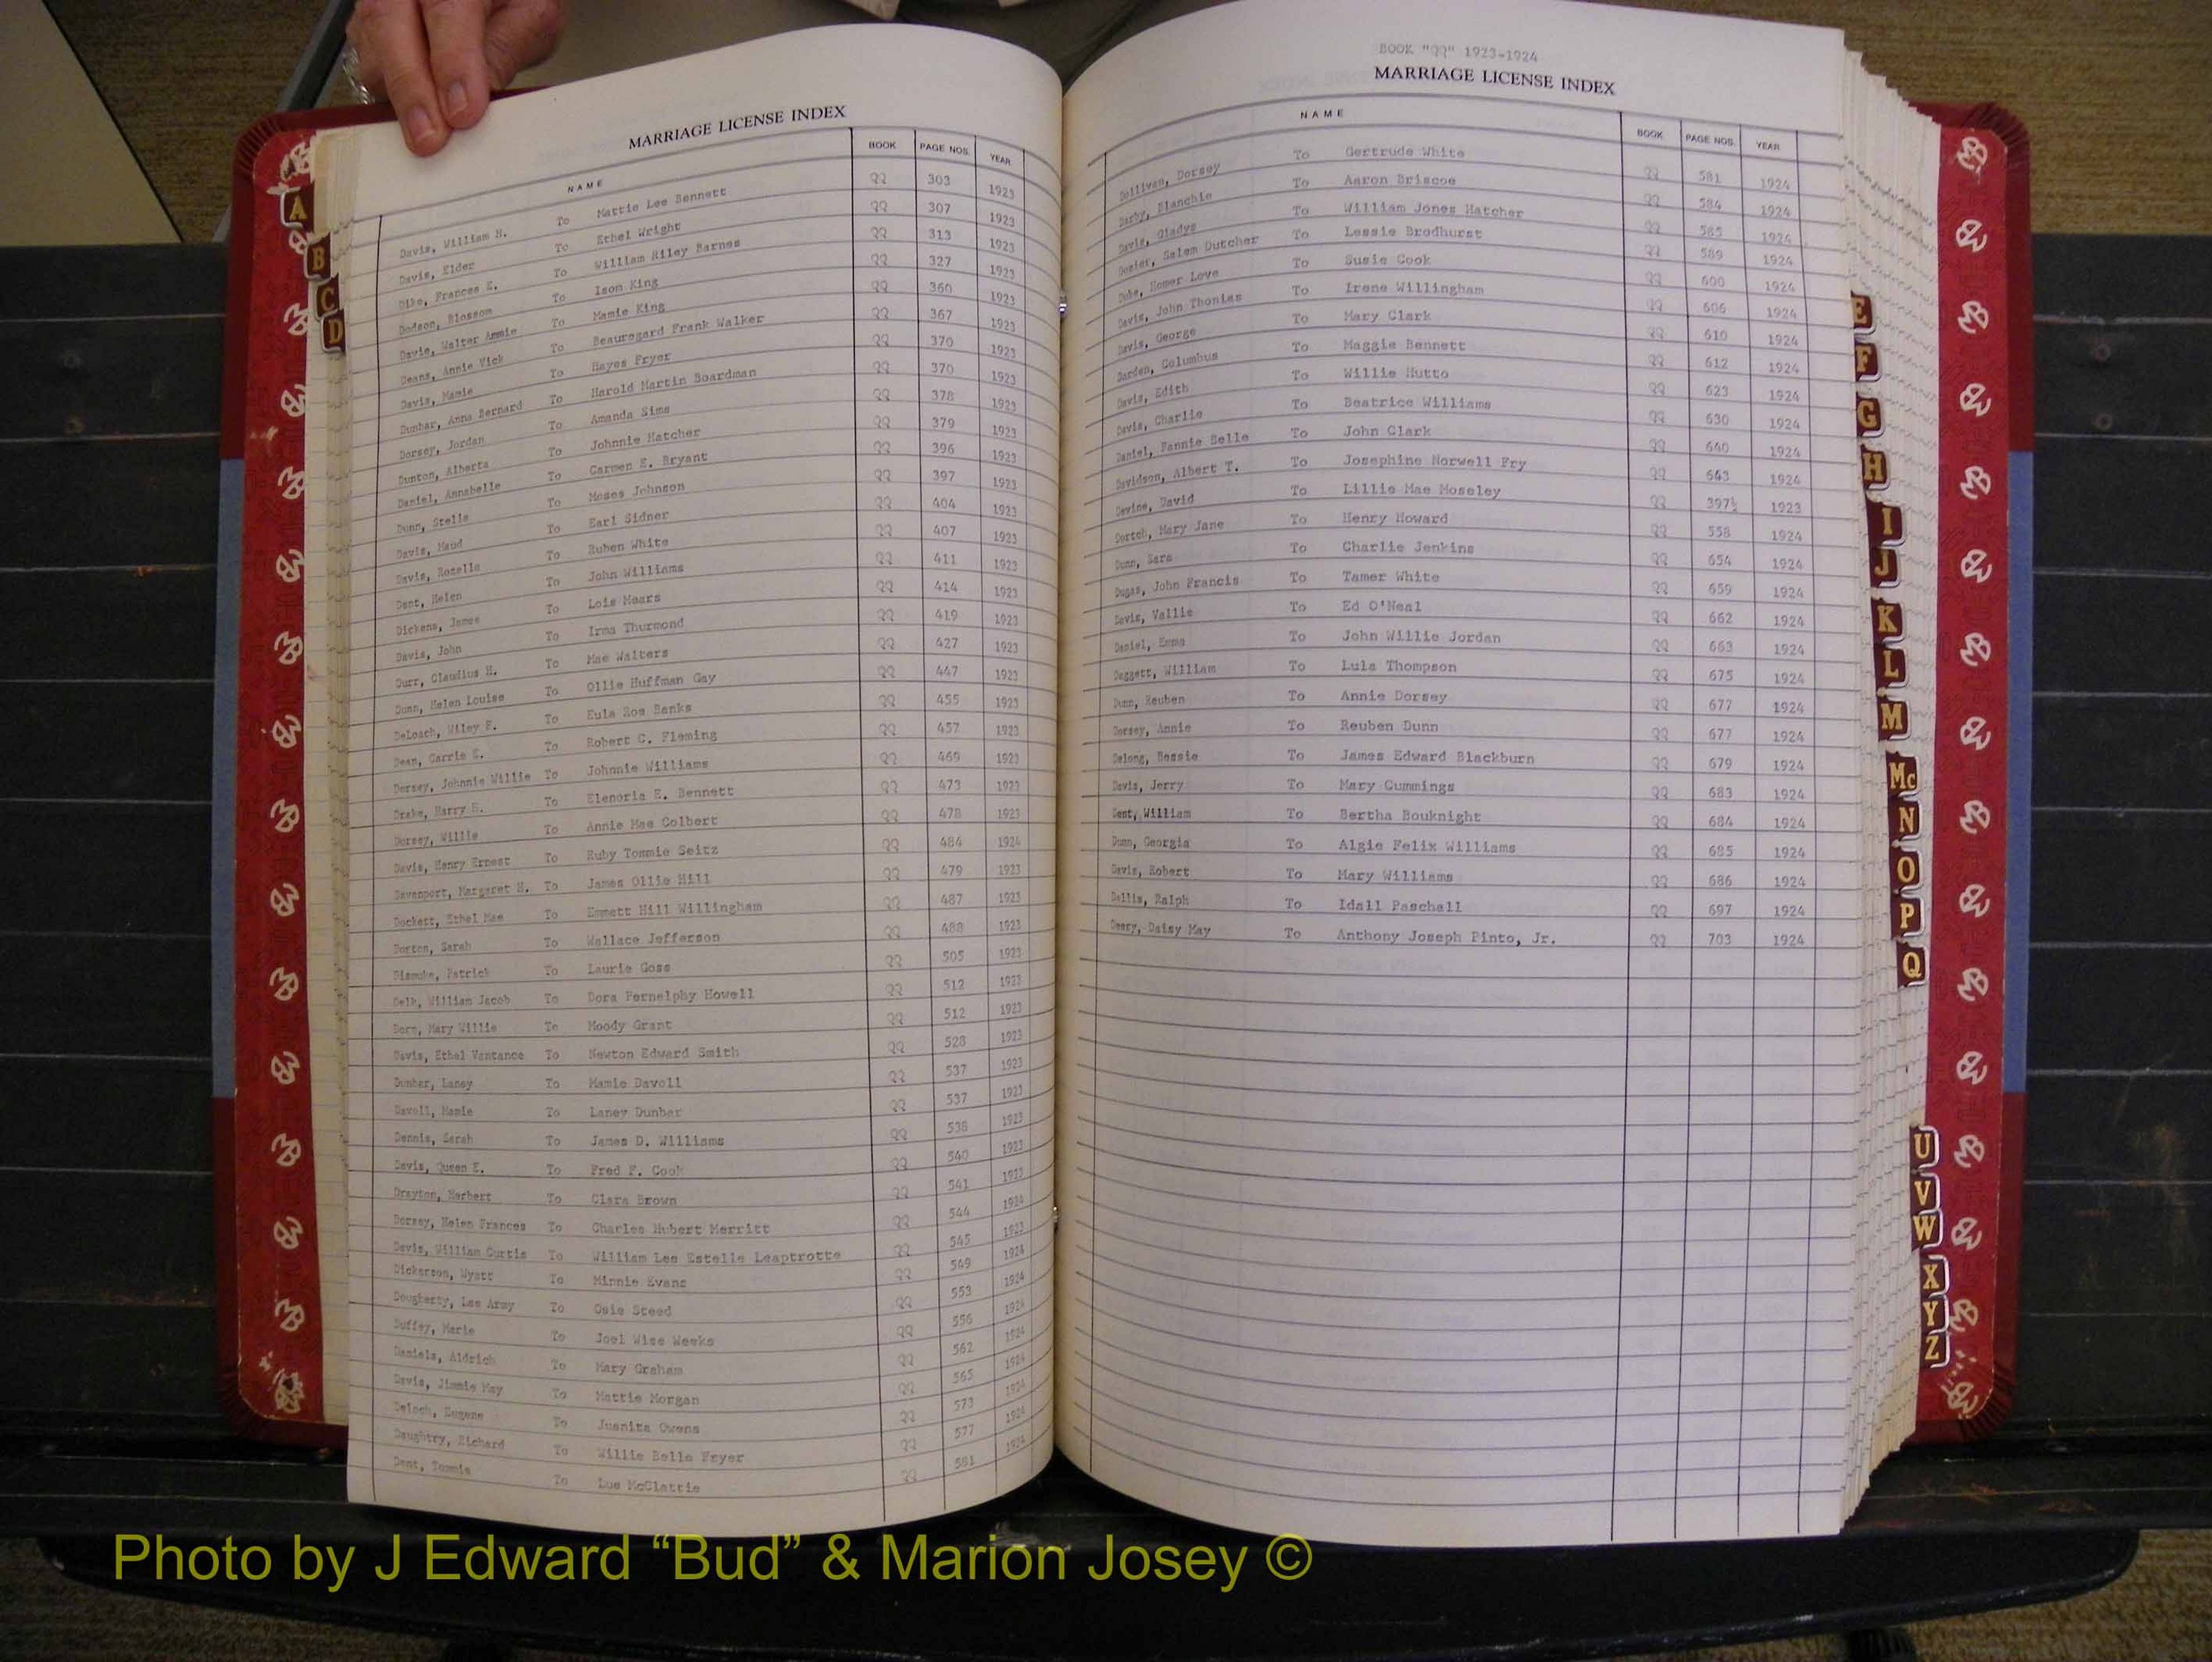 MARRIAGE LICENSE INDEX
NAME BOOK PAGE NOS. YEAR
Davis, William H. To Mattie Lee Bennett QQ 303 1923
Davis, Elder To Ethel Wright QQ 307 1923
Dike, Frances E. To William Riley Barnes QQ 313 1923
Dodson, Blossom To Isom King QQ 327 1923
Davis, Walter Ammie To Mamie King QQ 360 1923
Deans, Annie Vick To Beauregard Frank Walker QQ 367 1923
Davis, Mamie To Hayes Fryer QQ 370 1923
Dunbar, Anna Bernard To Harold Martin Boardman QQ 370 1923
Dorsey, Jordan To Amanda Sims QQ 378 1923
Dunton, Alberta To Johnnie Hatcher QQ 379 1923
Daniel, Annabelle To Carmen E. Bryant QQ 396 1923
Dunn, Stella To Moses Johnson QQ 397 1923
Davis, Maud To Earl Sidner QQ 404 1923
Davis, Rozelle To Ruben White QQ 407 1923
Dent, Helen To John Williams QQ 411 1923
Dickens, James To Lois Mears QQ 414 1923
Davis, John To Irma Thurmond QQ 419 1923
Durr, Claudius H. To Mae Walters QQ 427 1923
Dunn, Helen Louise To Ollie Huffman Gay QQ 447 1923
DeLoach, Wiley E. To Eula Roe Banks QQ 455 1923
Dean, Carrie E. To Robert C. Fleming QQ 457 1923
Dorsey, Johnnie Willie To Johnnie Williams QQ 469 1923
Drake, Harry To Elenoria E. Bennett QQ 473 1923
Dorsey, Willie To Annie Mae Colbert QQ 478 1923
Davis, Henry Ernest To Ruby Tommie Seitz QQ 484 1924
Davenport, Margaret H. To James Ollie Hill QQ 479 1923
Dockett, Ethel Mae To Emmett Hill Willingham QQ 487 1923
Dorton, Sarah To Wallace Jefferson QQ 488 1923
Dismuke, Patrick To Laurie Goss QQ 505 1923
Delk, William Jacob To Dora Pernelphy Howell QQ 512 1923
Dorn, Mary Willie To Moody Grant QQ 512 1923
Davis, Ethel Vantance To Newton Edward Smith QQ 528 1923
Dunbar, Laney To Mamie Davoll QQ 537 1923
Davoll, Mamie To Laney Dunbar QQ 537 1923
Dennis, Sarah To James D. Williams QQ 538 1923
Davis, Queen E. To Fred F. Cook QQ 540 1923
Drayton, Herbert To Clara Brown QQ 541 1923
Dorsey, Helen Frances To Charles Hubert Merritt QQ 544 1924
Davis, William Curtis To William Lee Estelle Leaptrotte QQ 545 1923
Dickerson, Wyatt To Minnie Evans QQ 549 1924
Dougherty, Lee Army To Osie Steed QQ 553 1924
Duffey, Marie To Joel Wise Weeks QQ 556 1924
Daniels, Aldrich To Mary Graham QQ 562 1924
Davis, Jimmie May To Mattie Morgan QQ 565 1924
Deloch, Eugene To Juanita Owens QQ 573 1924
Daughtry, Richard To Willie Belle Fryer QQ 577 1924
Dent, Tommie To Lue McClattie QQ 581 1924
BOOK "QQ" 1923-1924
MARRIAGE LICENSE INDEX
NAME BOOK PAGE NOS. YEAR
Dollivan, Dorsey To Gertrude White QQ 581 1924
Darby, Blanchie To Aaron Briscoe QQ 584 1924
Davis, Gladys To William Jones Hatcher QQ 585 1924
Dozier, Salem Dutcher To Lessie Brodhurst QQ 589 1924
Duke, Homer Love To Susie Cook QQ 600 1924
Davis, John Thomas To Irene Willingham QQ 606 1924
Davis, George To Mary Clark QQ 610 1924
Darden, Columbus To Maggie Bennett QQ 612 1924
Davis, Edith To Willie Hutto QQ 623 1924
Davis, Charlie To Beatrice Williams QQ 630 1924
Daniel, Fannie Belle To John Clark QQ 640 1924
Davidson, Albert T. To Josephine Norwell Fry QQ 643 1924
Devine, David To Lillie Mae Moseley QQ 397½ 1923
Dortch, Mary Jane To Henry Howard QQ 558 1924
Dunn, Sara To Charlie Jenkins QQ 654 1924
Dugas, John Francis To Tamer White QQ 659 1924
Davis, Vallie To Ed O'Neal QQ 662 1924
Daniel, Emma To John Willie Jordan QQ 663 1924
Daggett, William To Lula Thompson QQ 675 1924
Dunn, Reuben To Annie Dorsey QQ 677 1924
Dorsey, Annie To Reuben Dunn QQ 677 1924
Delong, Bessie To James Edward Blackburn QQ 679 1924
Davis, Jerry To Mary Cummings QQ 683 1924
Dent, William To Bertha Bouknight QQ 684 1924
Dunn, Georgia To Algie Felix Williams QQ 685 1924
Davis, Robert To Mary Williams QQ 686 1924
Dallis, Ralph To Idall Paschall QQ 697 1924
Deary, Daisy May To Anthony Joseph Pinto, Jr. QQ 703 1924
A
B
C
D
E
F
G
H
I
J
K
L
M
Mc
N
O
P
Q
U
V
W
X
Y
Z
Photo by J Edward “Bud” & Marion Josey ©